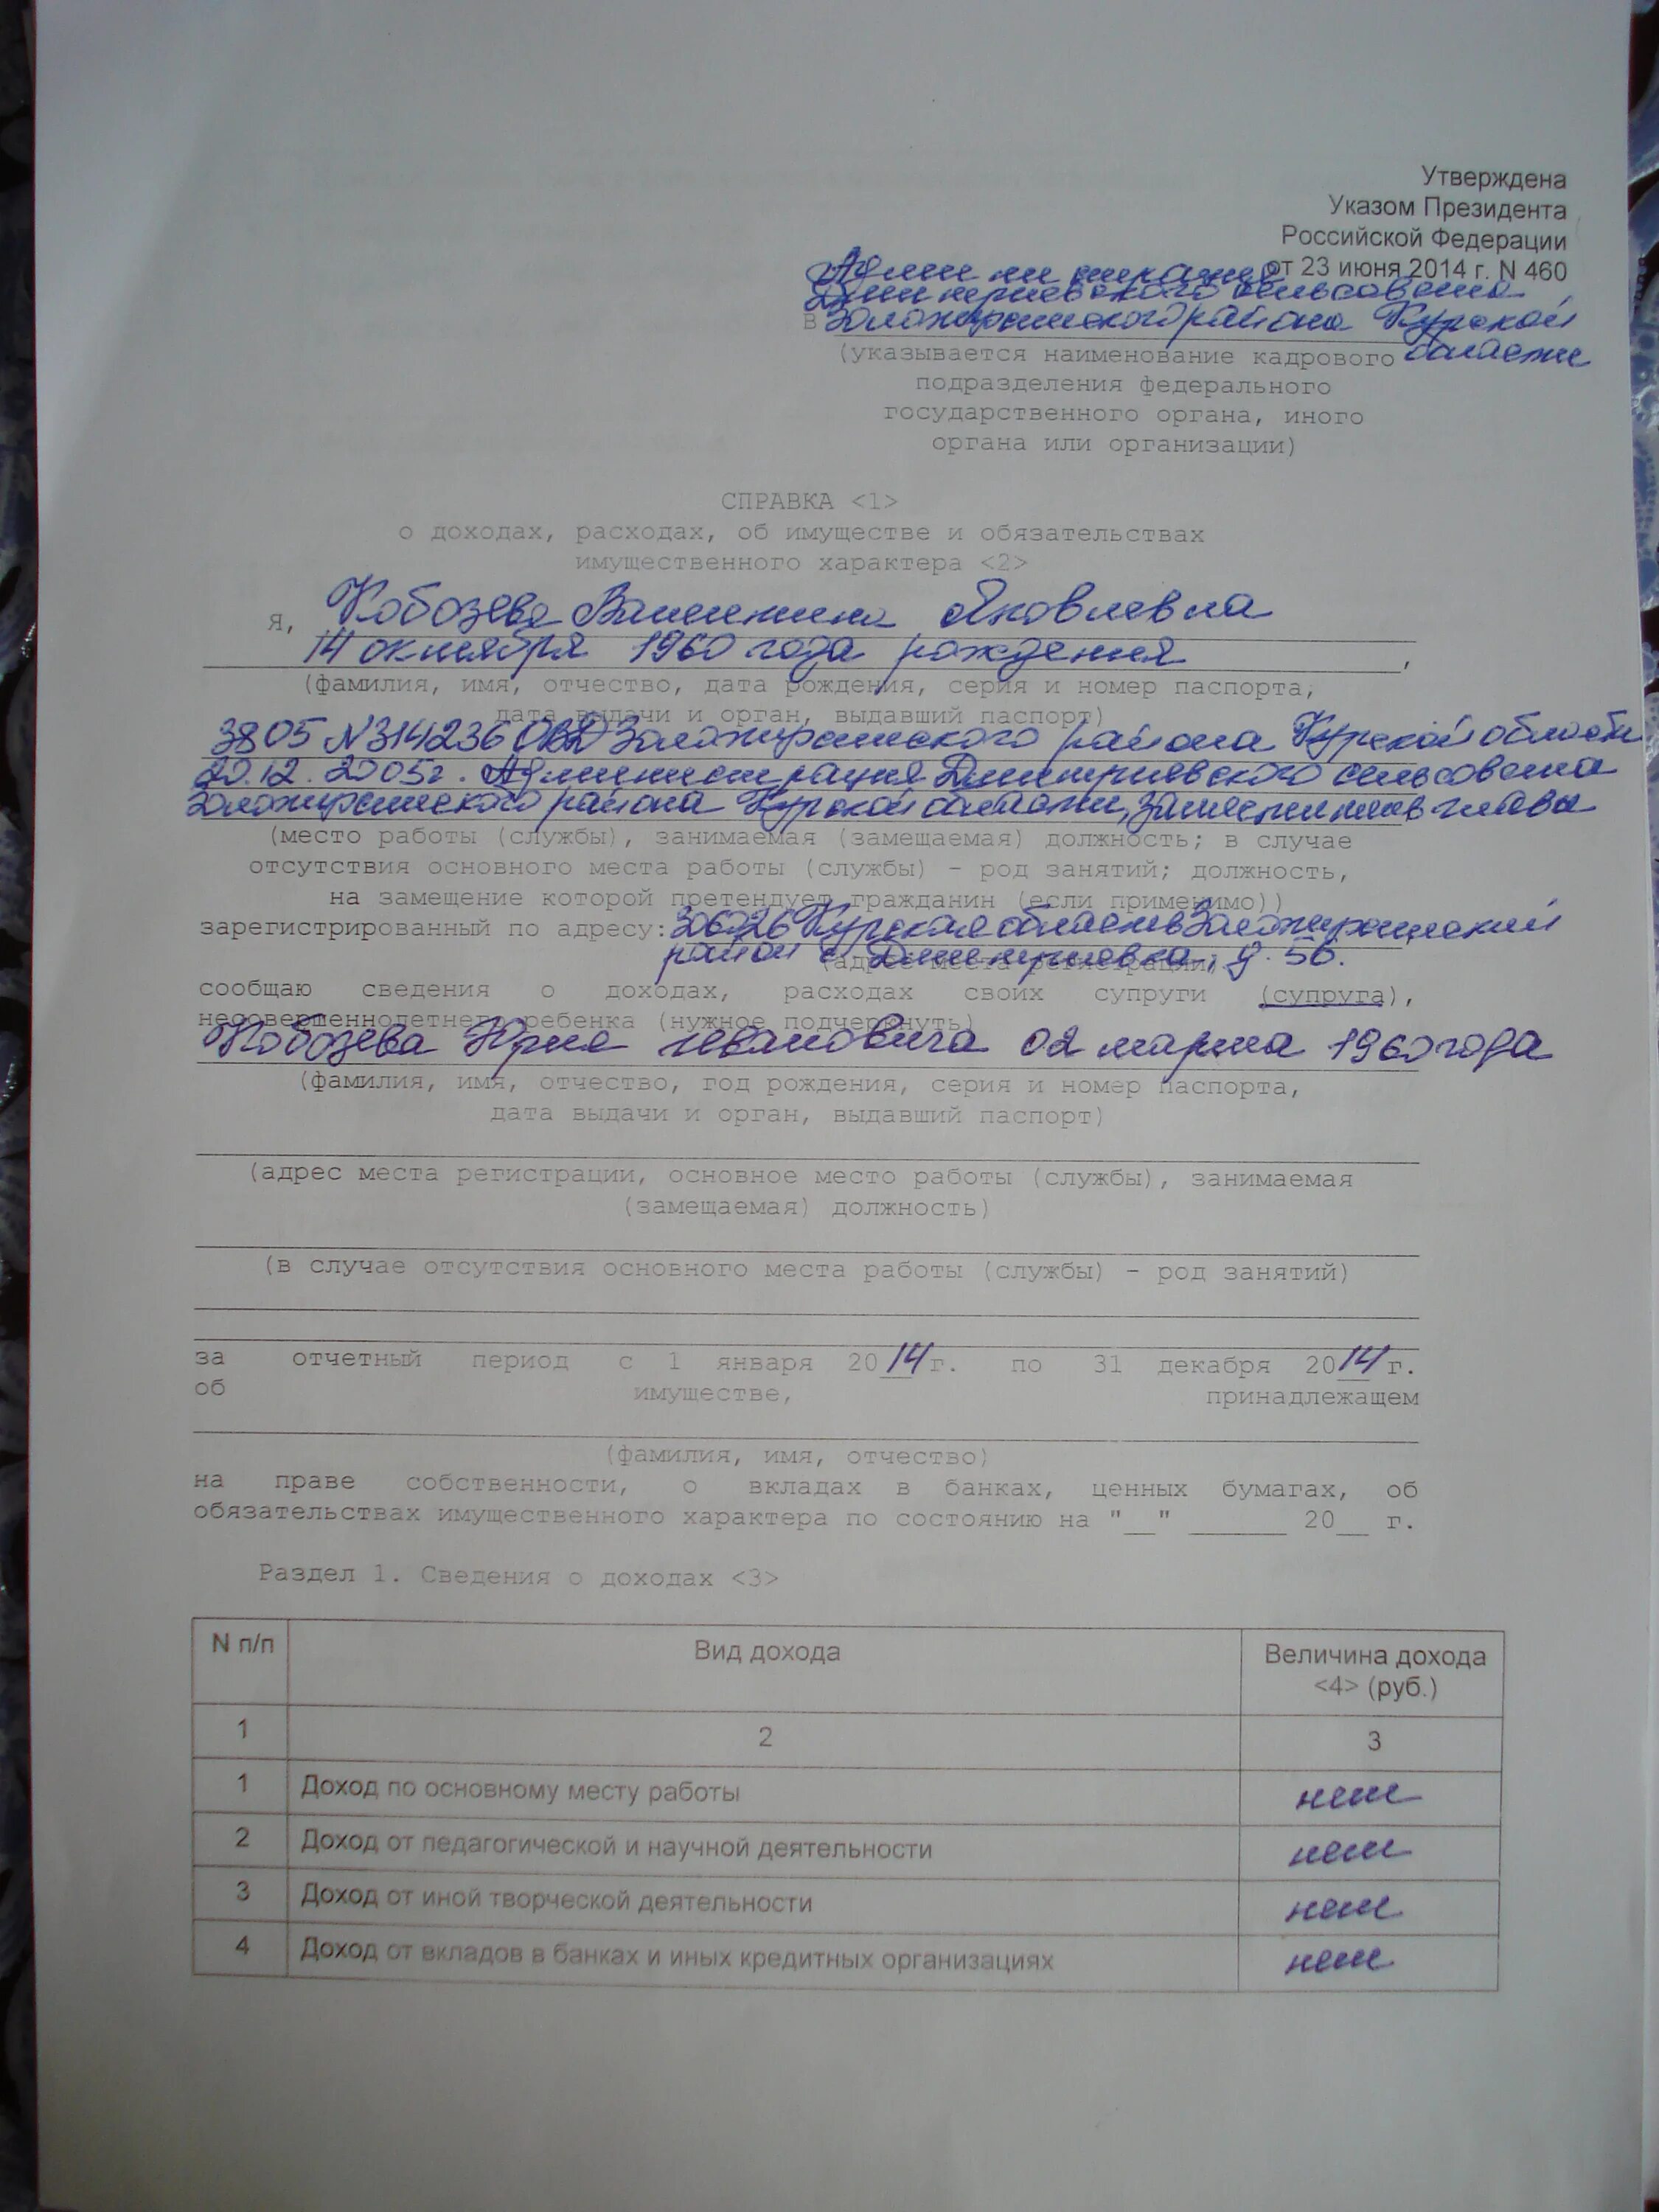 Утверждена
Указом Президента
Российской Федерации
от 23 июня 2014 г. N 460
Дмитриевского сельсовета
в Золотухинского района Курской
области
(указывается наименование кадрового
подразделения федерального
государственного органа, иного
органа или организации)
СПРАВКА <1>
о доходах, расходах, об имуществе и обязательствах
имущественного характера <2>
я, Кобозева Валентина Яковлевна
14 октября 1960 года рождения,
(фамилия, имя, отчество, дата рождения, серия и номер паспорта,
дата выдачи и орган, выдавший паспорт)
3805 N314236 ОВД Золотухинского района Курской области
20.12.2005г. Администрация Дмитриевского сельсовета
Золотухинского района Курской области, заместитель главы
(место работы (службы), занимаемая (замещаемая) должность; в случае
отсутствия основного места работы (службы) – род занятий; должность,
на замещение которой претендует гражданин (если применимо))
зарегистрированный по адресу: Курская область Золотухинский
район с. Дмитриевка, д.
(адрес места регистрации)
сообщаю сведения о доходах, расходах своих супруги (супруга),
несовершеннолетнего ребенка (нужное подчеркнуть)
Кобозева Юрия Ивановича 02 марта 1960 года
(фамилия, имя, отчество, год рождения, серия и номер паспорта,
дата выдачи и орган, выдавший паспорт)
(адрес места регистрации, основное место работы (службы), занимаемая
(замещаемая) должность)
(в случае отсутствия основного места работы (службы) – род занятий)
за отчетный период с 1 января 2014 г. по 31 декабря 2014 г.
об имуществе, принадлежащем
(фамилия, имя, отчество)
на праве собственности, о вкладах в банках, ценных бумагах, об
обязательствах имущественного характера по состоянию на "__" ______ 20__ г.
Раздел 1. Сведения о доходах <3>
N п/п Вид дохода Величина дохода
<4> (руб.)
1 2 3
1 Доход по основному месту работы нет
2 Доход от педагогической и научной деятельности нет
3 Доход от иной творческой деятельности нет
4 Доход от вкладов в банках и иных кредитных организациях нет